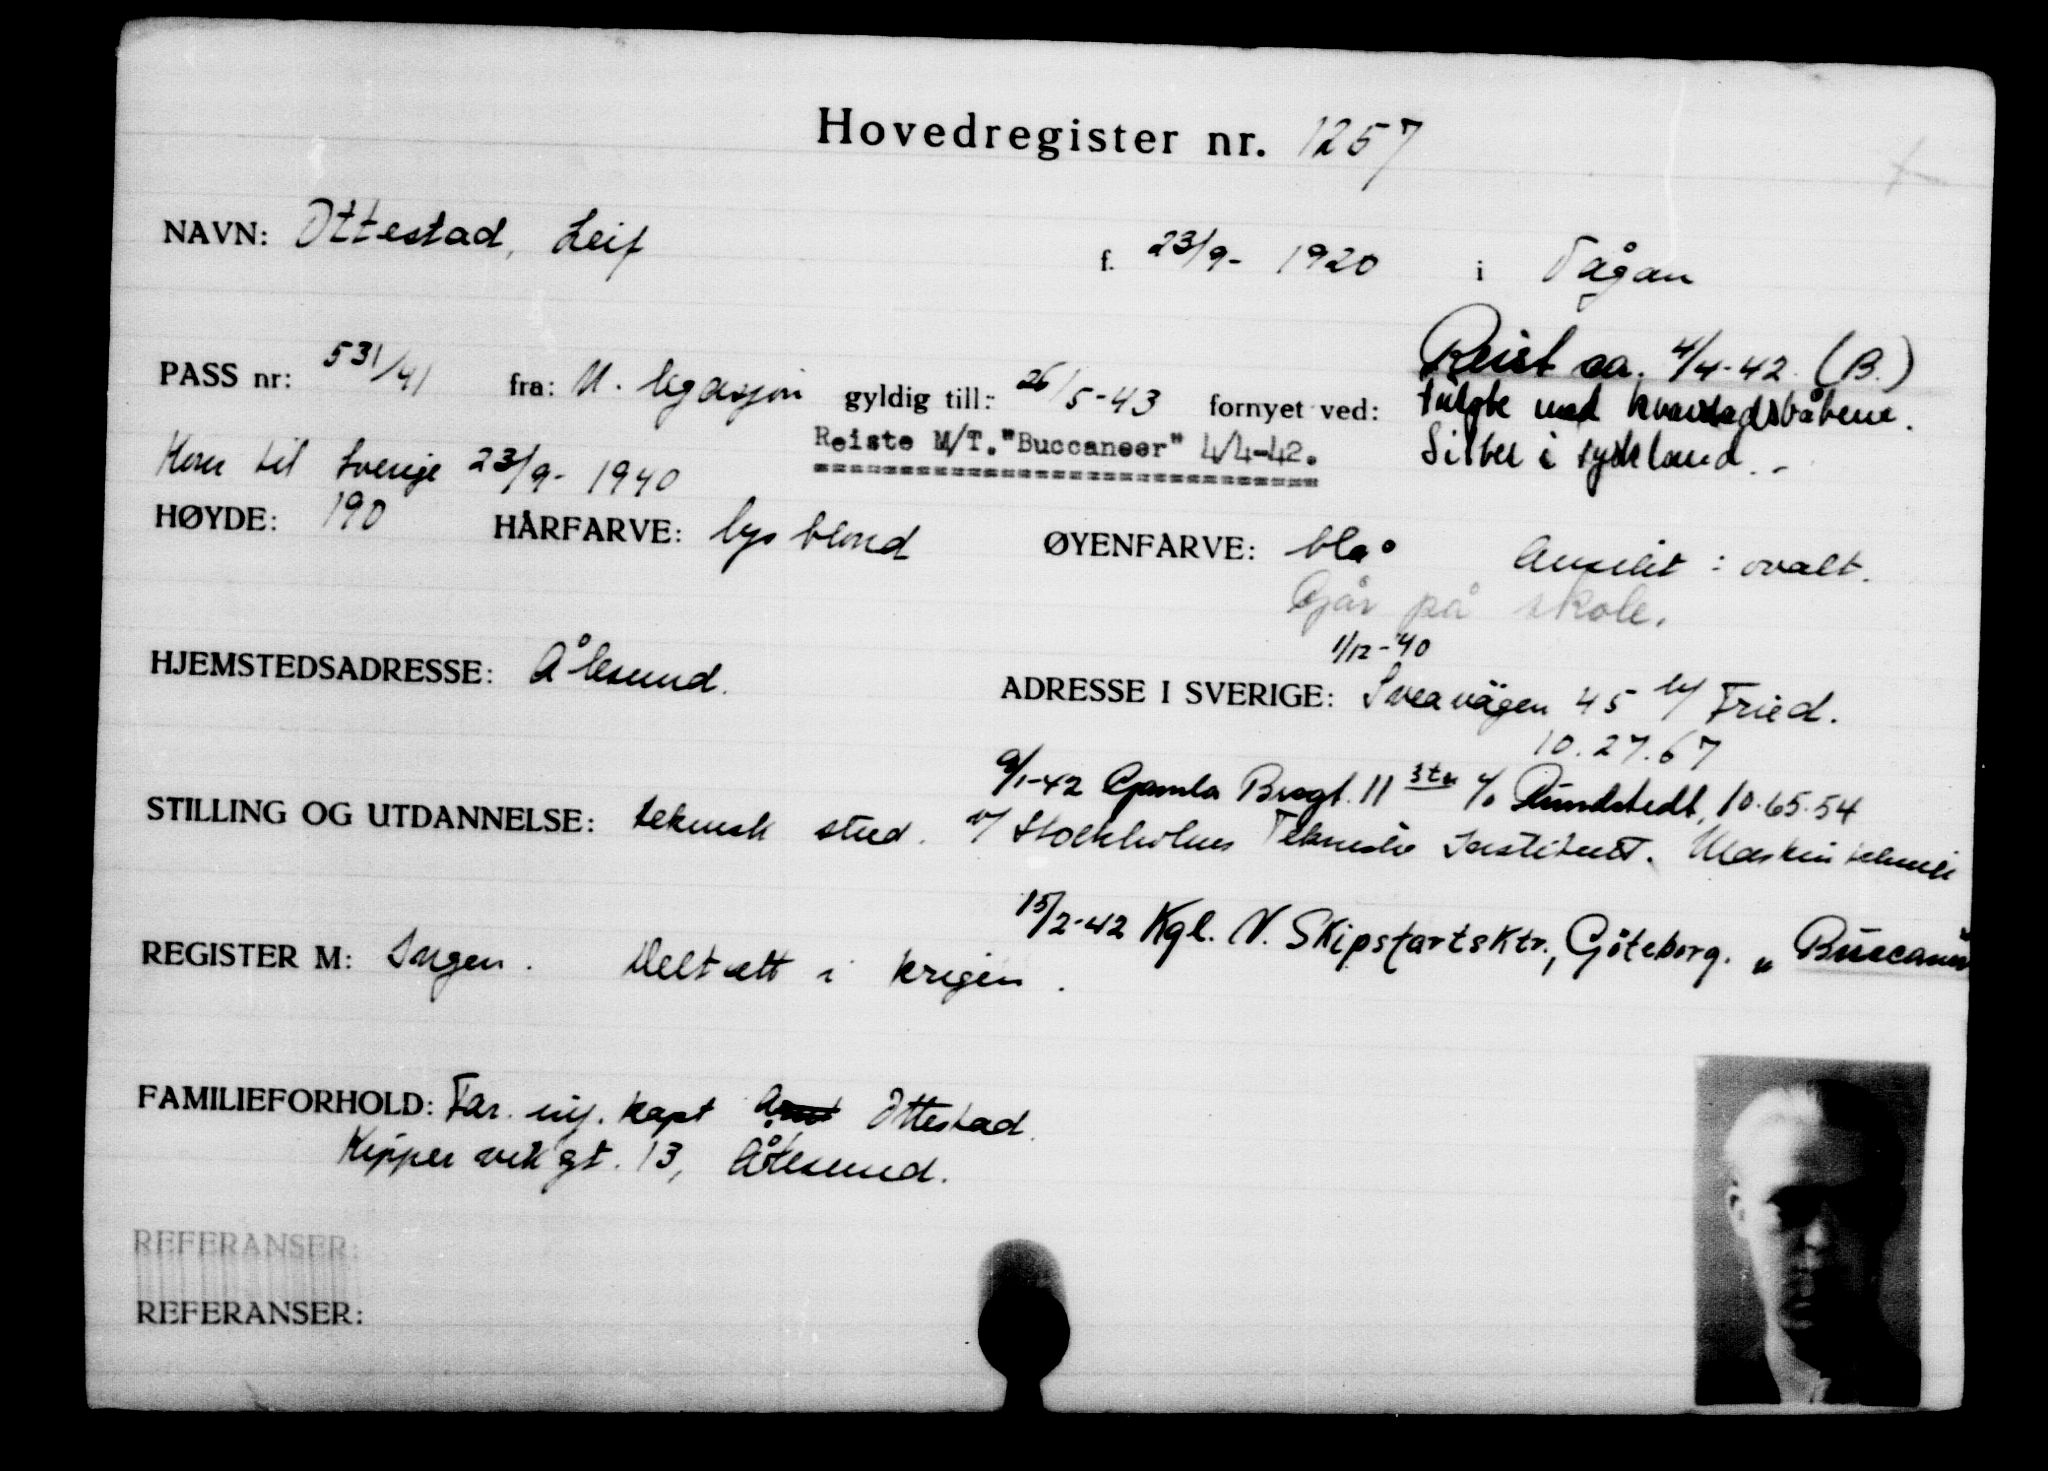 Hovedregister nr. 1257
NAVN: Ottestad, Leif f. 23/9- 1920 i Vågan
Reist ca. 4/4-42. (B.)
PASS nr: 531/41 fra: N. legasjon gyldig till: 26/5-43 fornyet ved:
fulgte med kvarstadsbåtene.
Reiste M/T."Buccaneer" 4/4-42.
Sitter i tyskland. -
Kom til Sverige 23/9- 1940
HØYDE: 190 HÅRFARVE: lys blond ØYENFARVE: blå Ansikt : ovalt.
Går på skole.
1/12-40
HJEMSTEDSADRESSE: Ålesund. ADRESSE I SVERIGE: Sveavägen 45 b/ Fried.
10.27.67
9/1-42 Gamla Brogt. 11 3tr c/o Rundstedt, 10.65.54
STILLING OG UTDANNELSE: teknisk stud. v/ Stockholms Tekniske Institutt. Maskinteknik
15/2-42 Kgl. N. Skipsfartsktr., Göteborg. "Buccaneer"
REGISTER M: Ingen. Deltatt i krigen.
FAMILIEFORHOLD: Far. ing. kapt Ottestad.
Kippervikgt. 13, Ålesund.
REFERANSER:
REFERANSER: